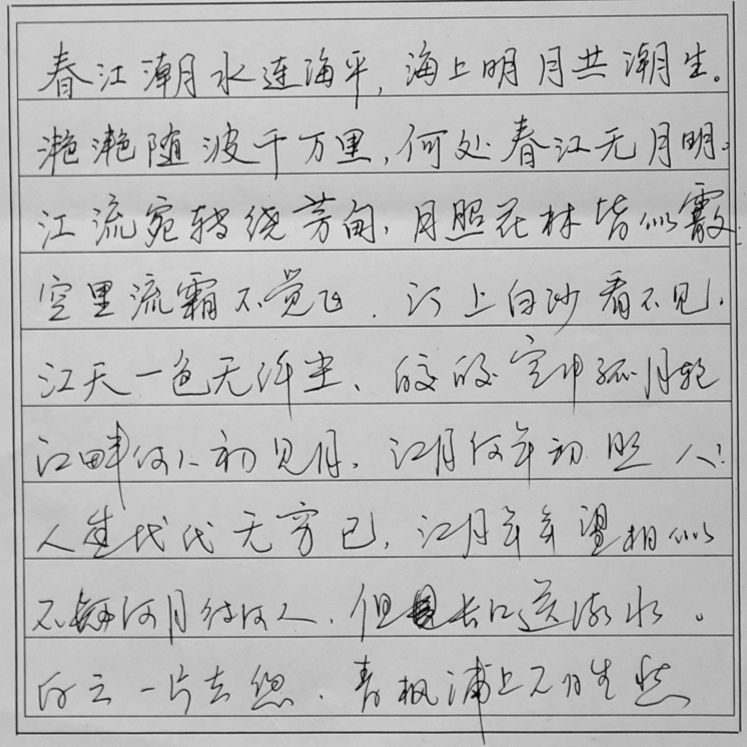 春江潮水连海平，海上明月共潮生。
滟滟随波千万里，何处春江无月明。
江流宛转绕芳甸，月照花林皆似霰
空里流霜不觉飞．汀上白沙看不见．
江天一色无纤尘、皎皎空中孤月轮
江畔何人初见月．江月何年初照人？
人生代代无穷已，江月年年望相似
不知何月待何人．但见长江送流水。
白云一片去悠．青枫浦上不生愁